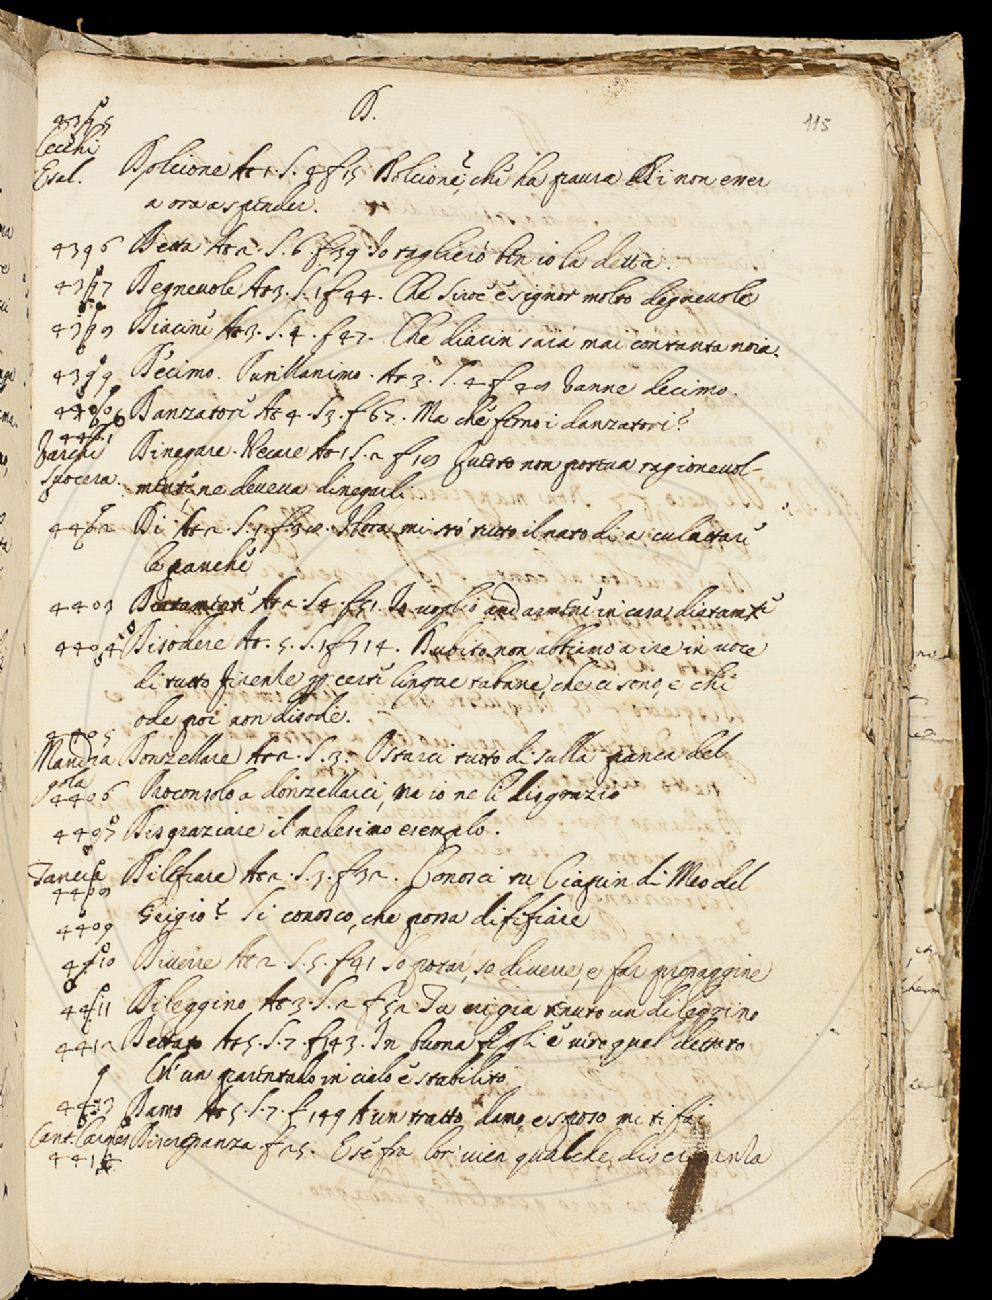 D.
115
4395
Cecchi
Esal.
Dolcione At. 1. S. 4 f. 15 Dolcione, chi ha paura Di non esser
a ora a spender.
4396 Detta At. 2. S. 6. f. 39. Io taglierò ben io la detta.
4397 Degnevole At. 3. S. 1 f. 44. Che Siroc è signor molto degnevole
4398 Diacine At. 3. S. 4. f. 47. Che diacin sarà mai con tanta noia.
4399 Decimo. Pusillanimo. At. 3. S. 4 f. 48 Vanne decimo.
4400 Danzatori At. 4. S. 3. f. 67. Ma che fanno i danzatori?
4401
Varchi
Suocera.
Dinegare. Negare At. 1 S. 2 f. 18 Questo non poteva ragionevol-
mente, ne deveva dinegarli
4402 Di At. 2. S. 1. f. 30. Hora mi stò tutto il nato dì a culattare
le panche
4403 Diatamente At. 2. S. 4. f. 51. Io voglio andarmene in casa diatamte
4404 Disodere At. 5. S. 1 f. 114. Dubito non abbiamo a ire in voce
di tutto Firenze p certe lingue tabane, che ci sono, e chi
ode poi non disode.
4405
Mandra
gola
Donzellare At. 2. S. 3. Ostarci tutto dì sulla panca del
4406 Proconsolo a donzellarci, ma io ne li disgrazio
4407 Disgraziare il medesimo esemplo.
Tancia
4408
Difilare At. 2. S. 3. f. 32. Conosci tu Ciapin di Meo del
Grigio? Si conosco, che possa dififiare
4409
4410 Diverre At. 2. S. 5. f. 41 So potar, so diverre, e far propaggine
4411 Dileggino At. 3. S. 2 f. 52 Tu m'gia tenuto un dileggino
4412 Dettato At. 5. S. 7. f. 143. In buona fe gli è vero quel dettato
Ch'un parentado in cielo è stabilito
4413 Damo At. 5. S. 7. f. 149 A un tratto, damo, e sposo mi ti fai
Cant. Carnes
4414
Discrepanza f. 25. E se fra lor vien qualche discrepanza